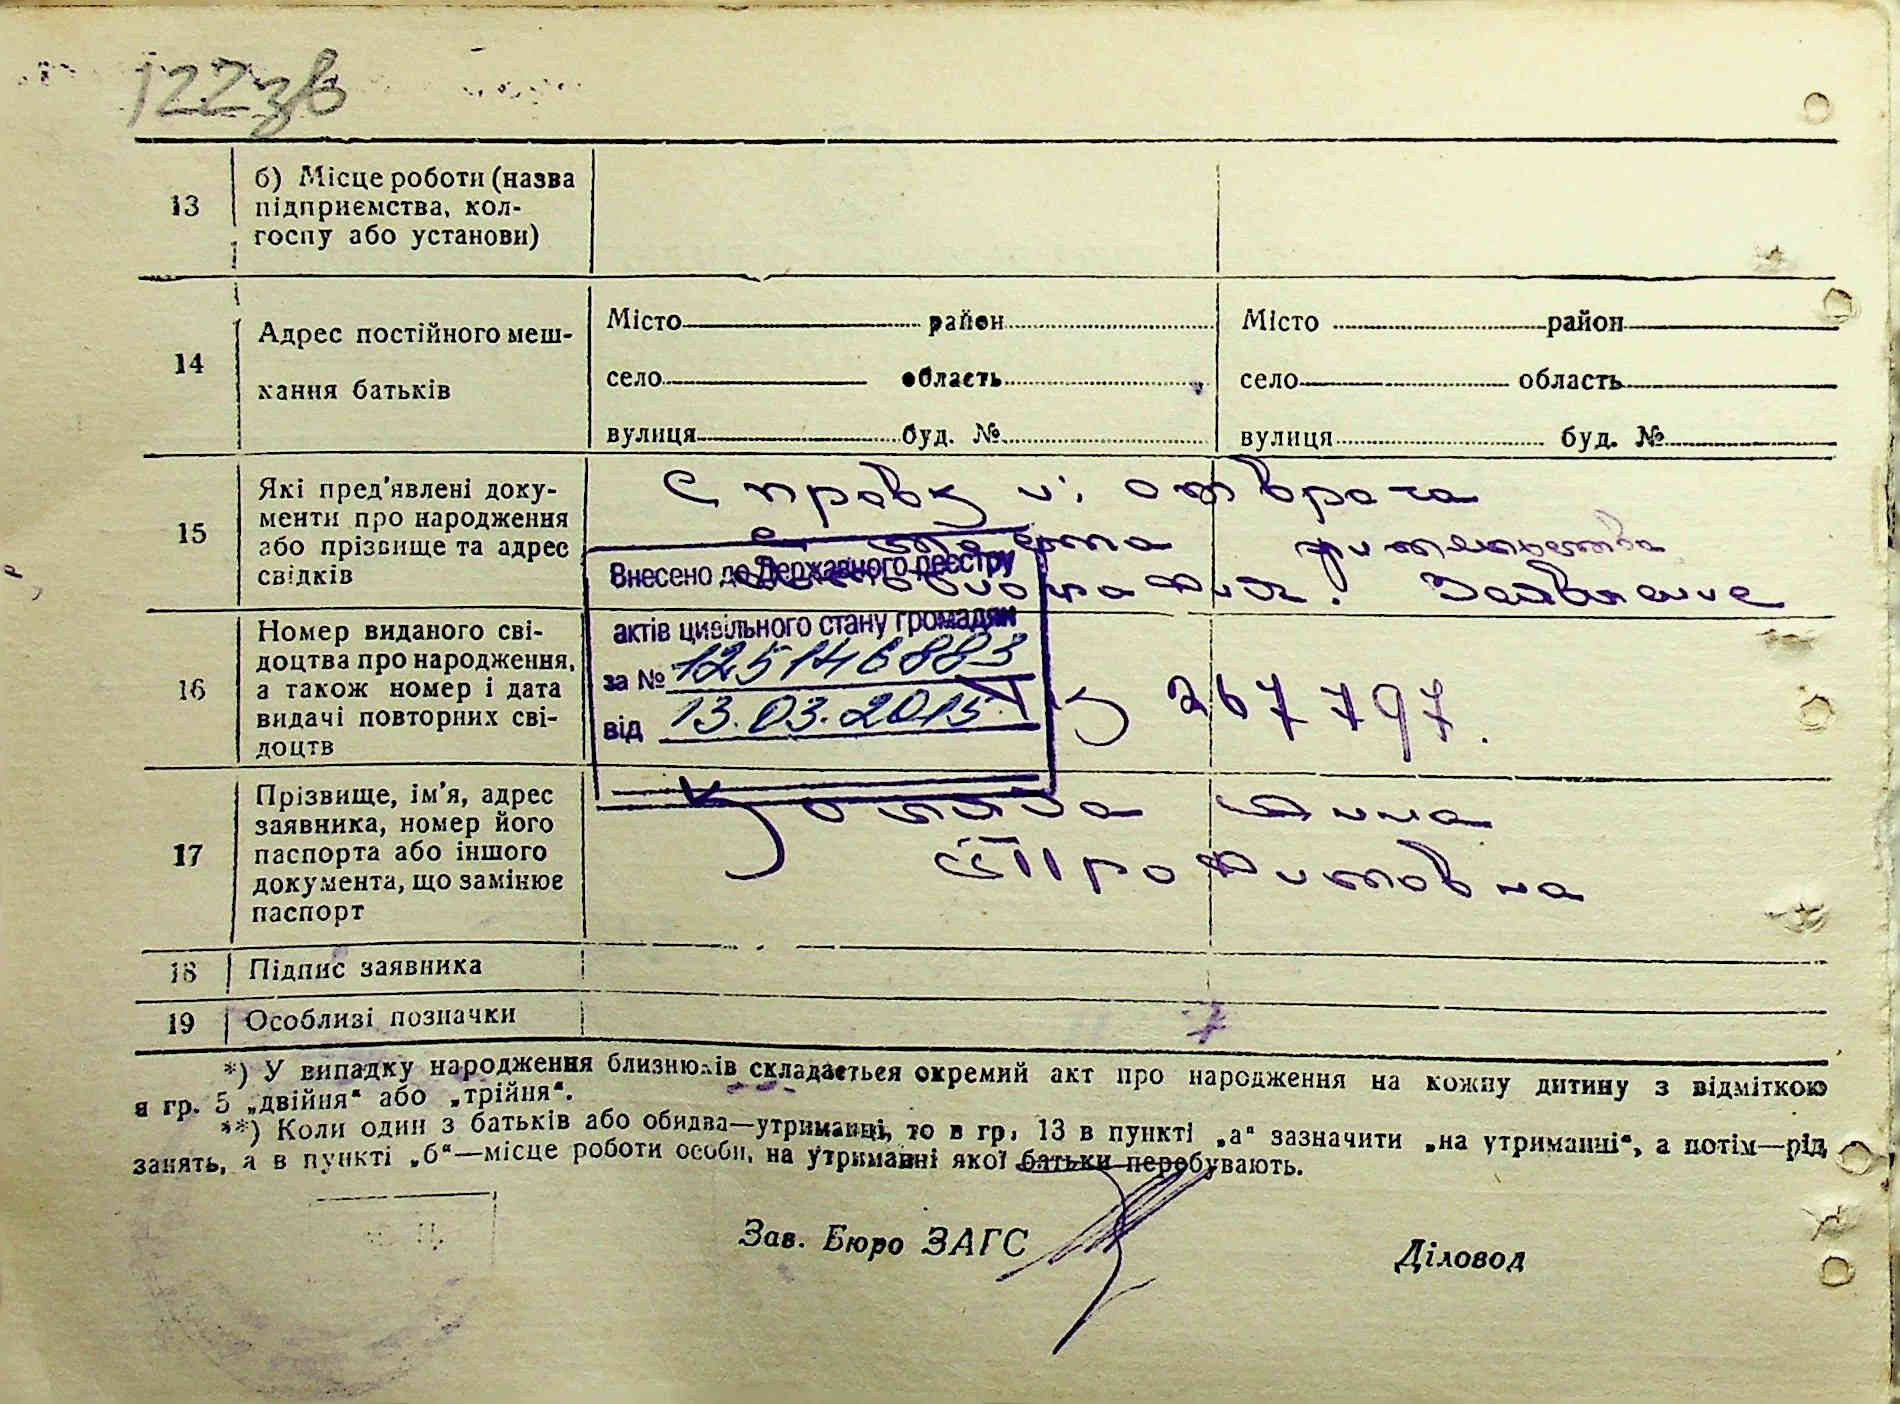 122зв
13
б) Місце роботи (назва
підприємства, кол-
госпу або установи)
14
Адрес постійного меш-
кання батьків
Місто район
село область
вулиця буд. №
Місто район
село область
вулиця буд. №
15
Які пред'явлені доку-
менти про народження
або прізвище та адрес
свідків
Справки: от врача
Заявление
16
Номер виданого сві-
доцтва про народження,
а також номер і дата
видачі повторних сві-
доцтв
Внесено до Державного реєстру
актів цивільного стану громадян
за № 125146883
від 13.03.2015
267797.
17
Прізвище, ім'я, адрес
заявника, номер його
паспорта або іншого
документа, що замінює
паспорт
18
Підпис заявника
19
Особливі позначки
*) У випадку народження близнюків складається окремий акт про народження на кожну дитину з відміткою
в гр. 5 „двійня" або „трійня".
**) Коли один з батьків або обидва—утриманці, то в гр. 13 в пункті „а" зазначити „на утриманні", а потім—рід
занять, а в пункті „б"—місце роботи особи, на утриманні якої батьки перебувають.
Зав. Бюро ЗАГС
Діловод